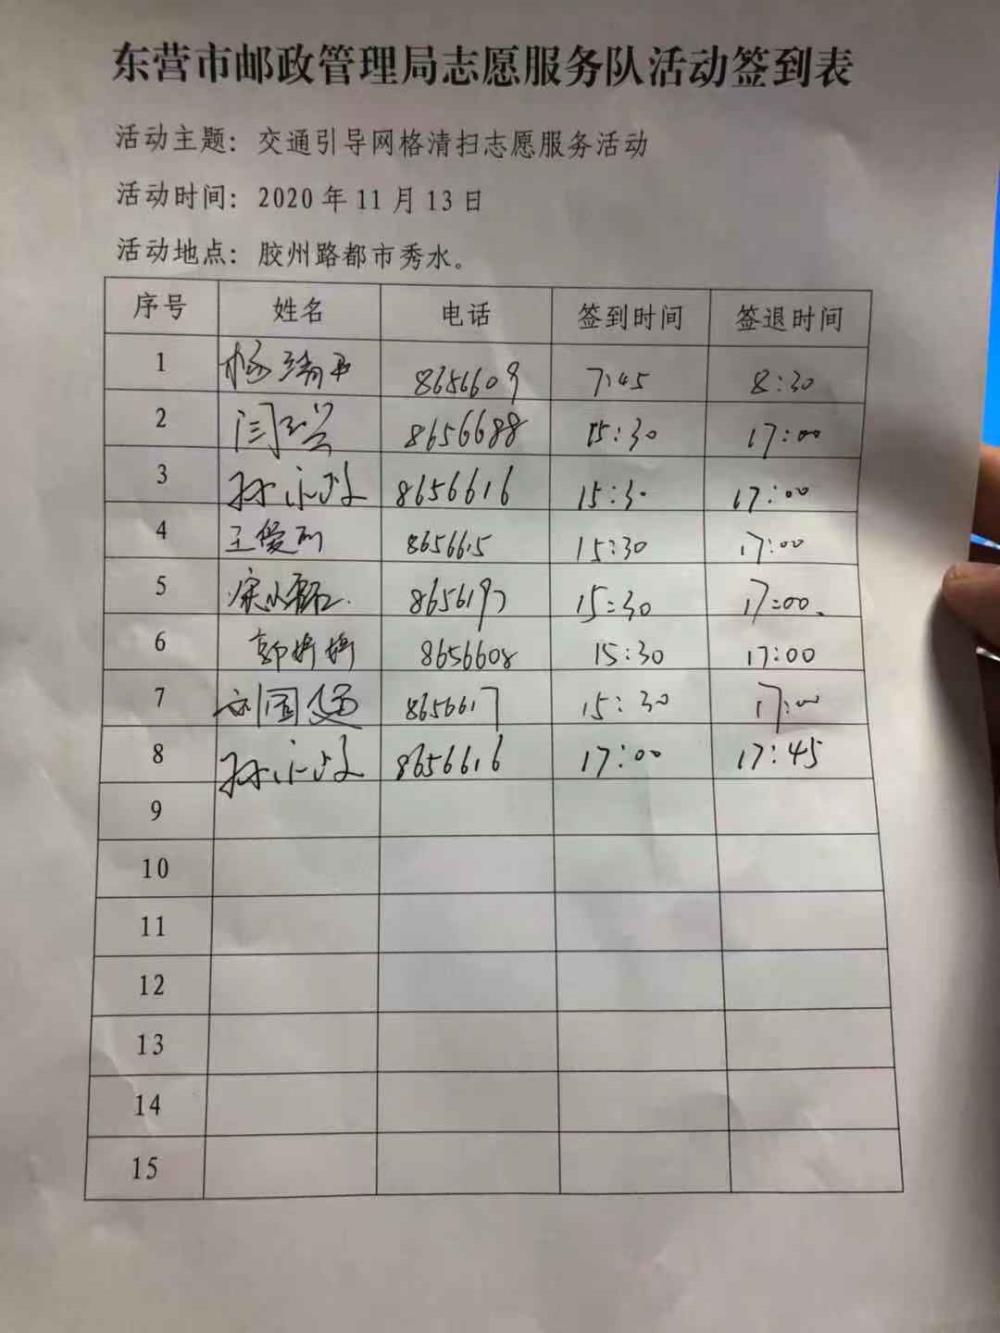 东营市邮政管理局志愿服务队活动签到表
活动主题：交通引导网格清扫志愿服务活动
活动时间：2020 年 11 月 13 日
活动地点：胶州路都市秀水。
序号 姓名 电话 签到时间 签退时间
1 杨 8656609 7:45 8:30
2 闫 8656688 15:30 17:00
3 孙永政 8656616 15:30 17:00
4 王爱列 8656615 15:30 17:00
5 8656197 15:30 17:00
6 郭婷婷 8656608 15:30 17:00
7 刘国 8656617 15:30 17:00
8 孙永政 8656616 17:00 17:45
9
10
11
12
13
14
15